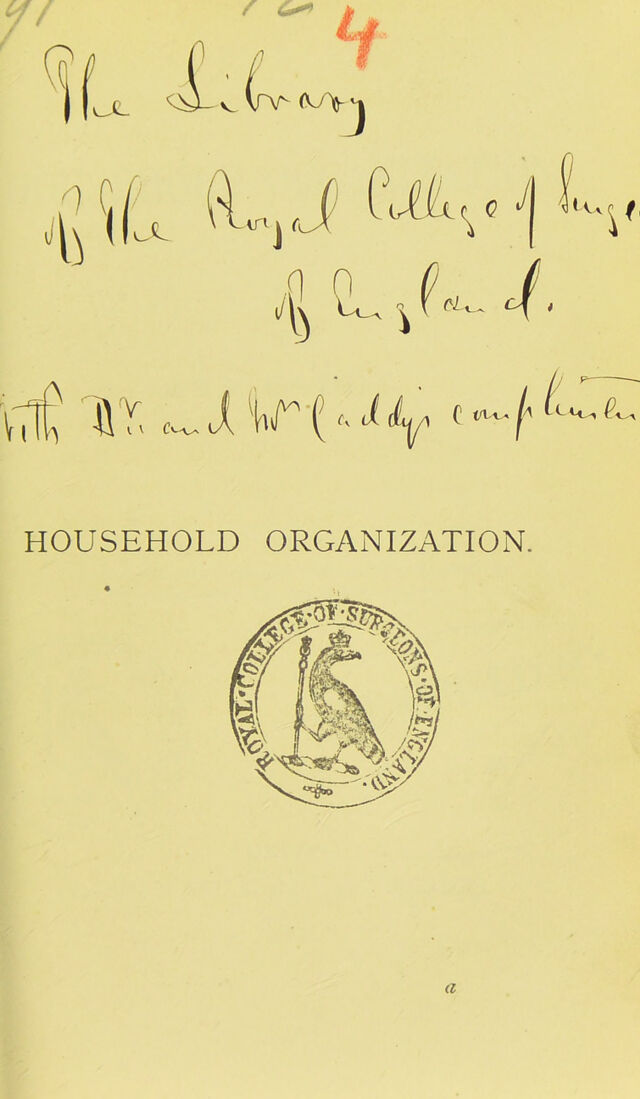 4
The Library
of The Royal College of Surge
of England.
With Dr. and Mrs Caddy's complimen
HOUSEHOLD ORGANIZATION.
ROYAL·COLLEGE·OF·SURGEONS·OF·ENGLAND.
a